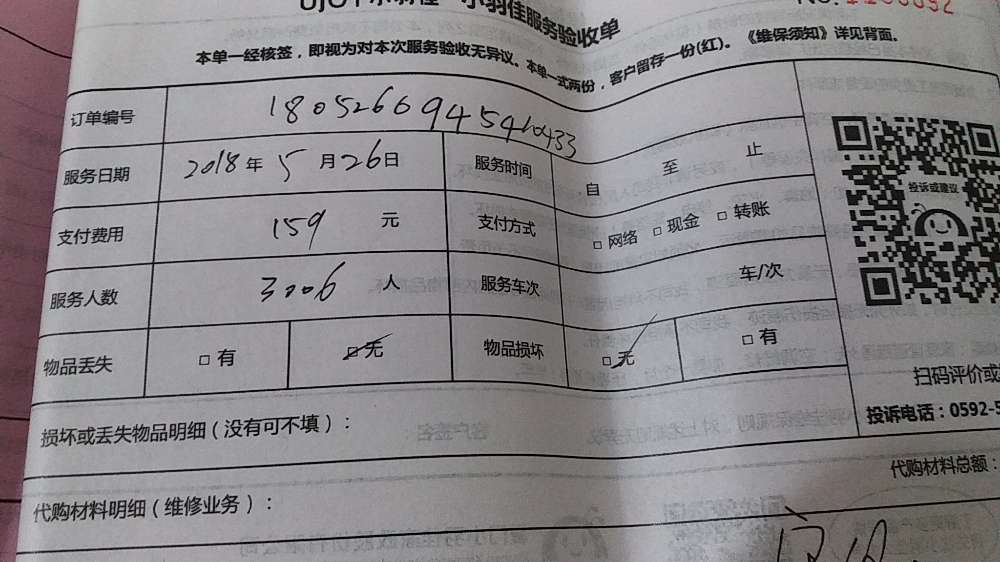 小羽佳服务验收单
NO.
本单一经核签，即视为对本次服务验收无异议。本单一式两份，客户留存一份(红)。《维保须知》详见背面。
订单编号
服务日期 2018年5月26日 服务时间 自 至 止
支付费用 159 元 支付方式 □网络 □现金 □转账
服务人数 3006 人 服务车次 车/次
物品丢失 □有 □无 物品损坏 □无 □有
投诉或建议
扫码评价或
投诉电话：0592-5
损坏或丢失物品明细（没有可不填）：
代购材料总额：
代购材料明细（维修业务）：